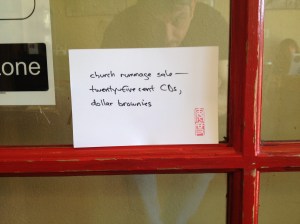 zone
church rummage sale —
twenty-five cent CDs,
dollar brownies